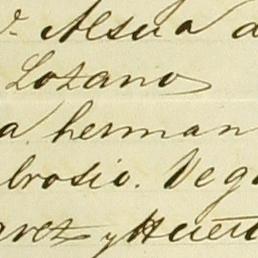 Alsua a
Lozano
a herman
brosio. Vega
arez y Huert